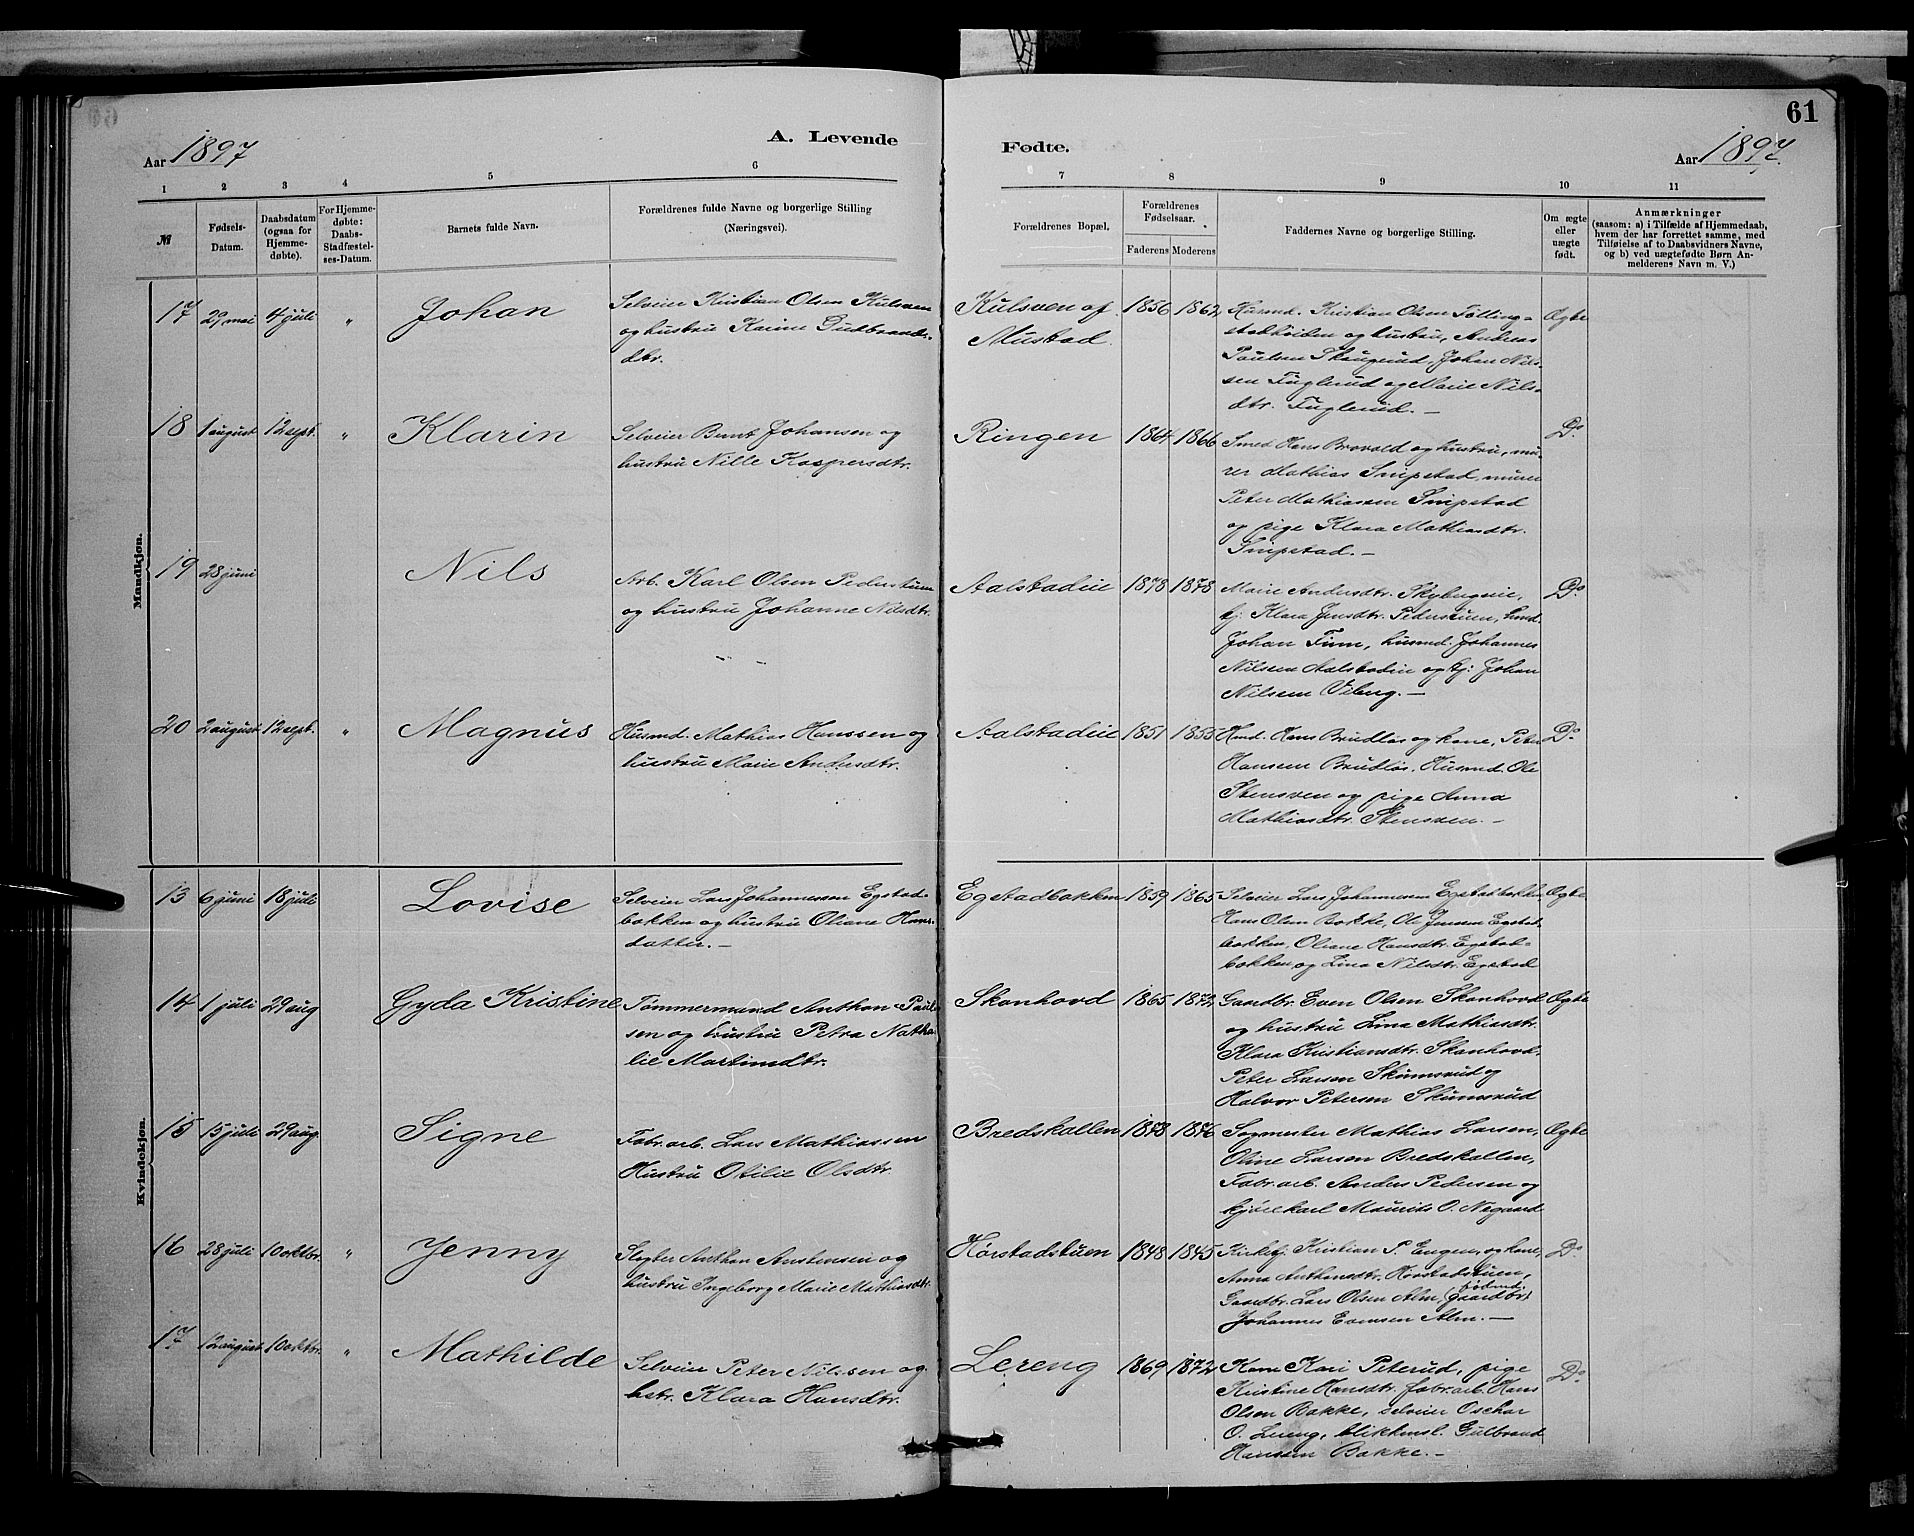 61
Aar 1897
A. Levende
Fødte.
Aar 1897.
1 2 3 4 5 6 7 8 9 10 11
№
Fødsels-
Datum.
Daabsdatum
(ogsaa for
Hjemme-
døbte).
For Hjemme-
døbte:
Daabs-
Stadfæstel-
ses-Datum.
Barnets fulde Navn.
Forældrenes fulde Navne og borgerlige Stilling
(Næringsvei).
Forældrenes Bopæl,
Forældrenes
Fødselsaar.
Faderens Moderens
Faddernes Navne og borgerlige Stilling.
Om ægte
eller
uægte
født.
Anmærkninger
(saasom: a) i Tilfælde af Hjemmedaab,
hvem der har forrettet samme, med
Tilføielse af to Daabsvidners Navne,
og b) ved uægtefødte Børn An-
melderens Navn m. V.)
Mandkjøn.
17 29 mai 4 juli " Johan
Selveier Kristian Olsen Kulsven
og hustru Karine Gulbrands-
dtr.
Kulsven af
Mustad
1856 1862
Husmd. Kristian Olsen Tølling-
stadhøiden og hustru, Andreas
Paulsen Skaugerud, Johan Nils-
sen Fuglerud og Marie Nils-
dtr. Fuglerud. —
Ægte
18 1 august 12 sept. " Klarin
Selveier Bernt Johansen og
hustru Nille Kaspersdtr.
Ringen
1864 1866
Smed Hans Brovold og hustru, mu-
rer Mathias Smepstad, murer
Peter Mathiassen Smepstad
og pige Klara Mathiasdtr.
Smepstad. —
Do
19 28 juni Nils
Arb. Karl Olsen Pederstuen
og hustru Johanne Nilsdtr.
Aalstadeie
1878 1878
Marie Andersdtr. Skybergeie,
tj. Klara Jensdtr. Pederstuen, hmd.
Johan Finn, husmd. Johannes
Nilsen Aalstadeie og tj. Johan
Nilsen Viberg. —
Do
20 2 august 12 sept. " Magnus
Husmd. Mathias Hanssen og
hustru Marie Andersdtr.
Aalstadeie
1851 1855
Hmd. Hans Brudlos og kone, Peter
Hansen Brudlos, Husmd. Ole
Stensven og pige Anna
Mathiasdtr. Stensven. —
Do
Kvindekjøn.
13 6 juni 18 juli Lovise
Selveier Lars Johannessen Egstad-
bakken og hustru Oliane Hans-
datter. —
Egstadbakken
1859 1865
Selveier Lars Johannessen Egstadbakken
Hans Olsen Bakke, Ole Jensen Egstad-
bakken, Oliane Hansdtr. Egstad-
bakken og Lina Nilsdtr. Egstad
Ægte
14 1 juli 29 aug Gyda Kristine
Tømmermand Anthon Paul-
sen og hustru Petra Natha-
lie Martinsdtr.
Skonhovd
1865 1872
Gaardbr. Even Olsen Skonhovd
og hustru Lina Mathiasdtr.
Klara Kristiansdtr. Skonhovd,
Peter Larsen Skumsrud og
Halvor Petersen Skumsrud
Ægte
15 15 juli 29 aug. Signe
Fabr. arb. Lars Mathiassen
Hustru Otilie Olsdtr.
Bredskallen
1878 1876
Sagmester Mathias Larsen,
Oline Larsen Bredskallen,
Fabr. arb. Anders Pedersen og
kjørekarl Maurits O. Negaard
Ægte
16 28 juli 10 oktbr. " Jenny
Slagter Anthon Anstensen og
hustru Ingeborg Marie Mathiasdtr.
Hørstadstuen
1848 1845
Kirketj. Kristian P. Engen, og kone,
Anna Anthonsdtr. Hørstadstuen,
Gaardbr. Lars Olsen Alm, gaardbr.
Johannes Evensen Alm. —
Do
17 12 august 10 oktbr. " Mathilde
Selveier Peter Nilssen og
hstr. Klara Hansdtr.
Lereng
1869 1872
Kone Kari Peterud, pige
Kristine Hansdtr. fabr. arb. Hans
Olsen Bakke, selveier Oschar
O. Lereng, blikkensl. Gulbrand
Hansen Bakke. —
Do